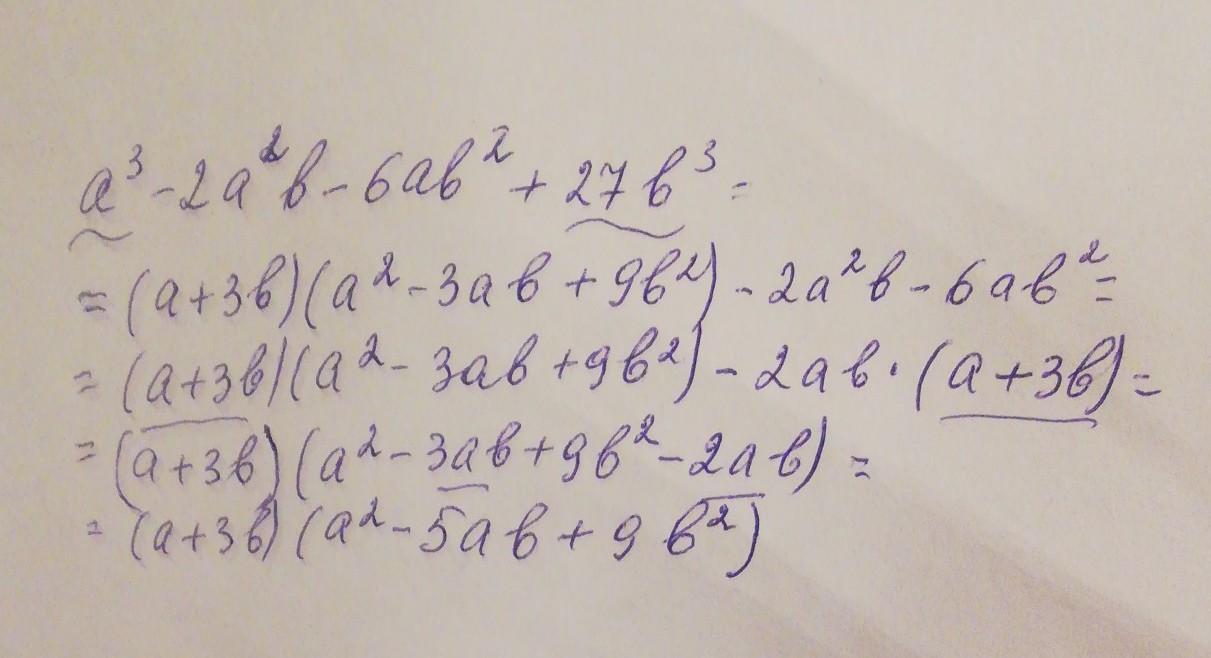 a³ - 2a²b - 6ab² + 27b³ =
= (a+3b)(a² - 3ab + 9b²) - 2a²b - 6ab² =
= (a+3b)(a² - 3ab + 9b²) - 2ab · (a+3b) =
= (a+3b)(a² - 3ab + 9b² - 2ab) =
= (a+3b)(a² - 5ab + 9b²)